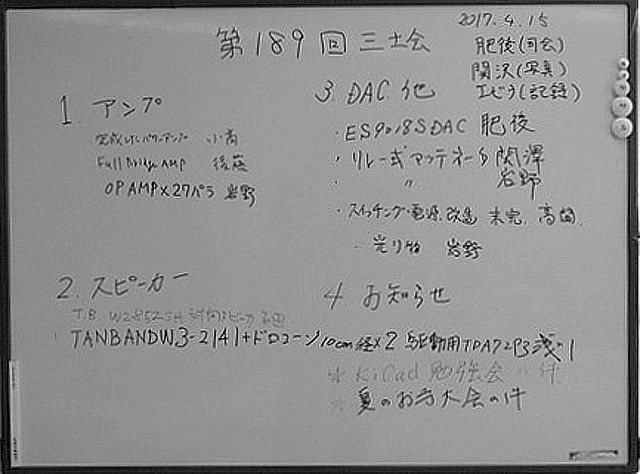 第189回 三土会
2017.4.15
肥後(司会)
関沢(写真)
エビラ(記録)
1. アンプ
完成したパワーアンプ 小高
Full Bridge AMP 後藤
OP AMP×27パラ 岩野
2. スピーカー
T.B.
TANBAND W3-2141+ドロコーン10cm経×2 駆動用TPA72 浅
3. DAC 他
・ES9018S DAC 肥後
・リレー式アッテネータ 関澤
〃 岩野
・スイッチング電源、改造 未完、高
・光り物 岩野
4. お知らせ
* KiCad 勉強会の件
* 夏のお寺大会の件